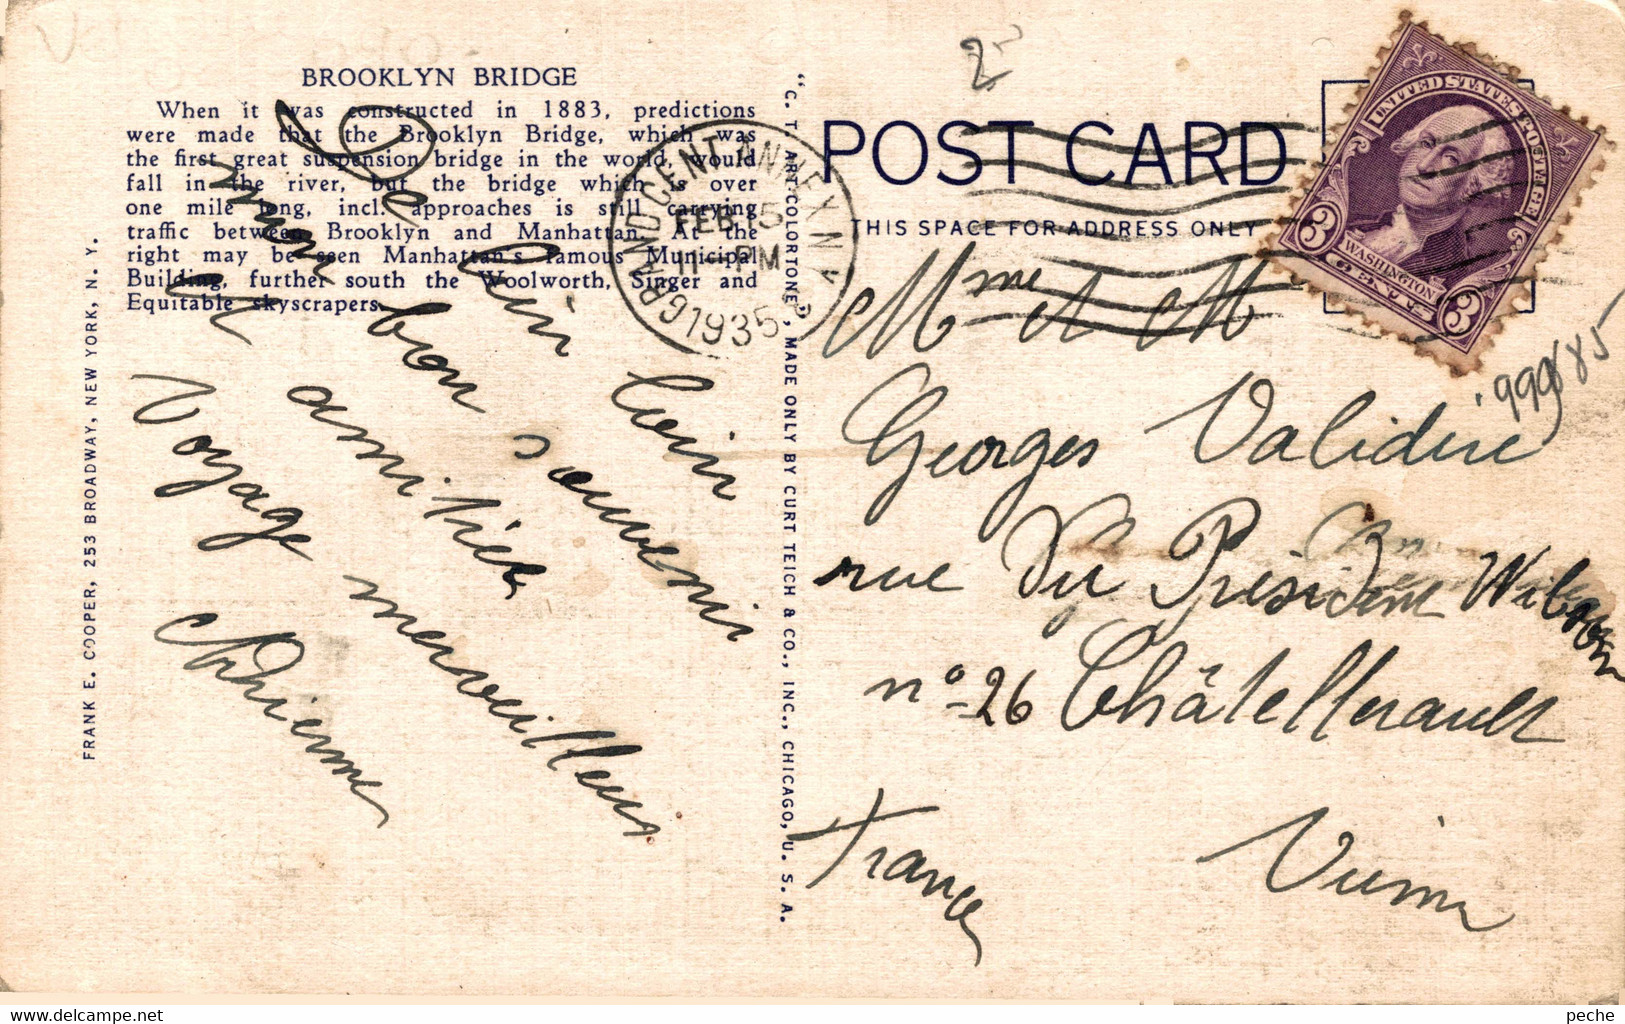 BROOKLYN BRIDGE
When it was constructed in 1883, predictions
were made that the Brooklyn Bridge, which was
the first great suspension bridge in the world, would
fall in the river, but the bridge which is over
one mile long, incl. approaches is still carrying
traffic between Brooklyn and Manhattan. At the
right may be seen Manhattan's famous Municipal
Building, further south the Woolworth, Singer and
Equitable skyscrapers.
FRANK E. COOPER, 253 BROADWAY, NEW YORK, N. Y.
De loin loin
mon bon souvenir
et amitiés
Voyage merveilleux
"C. T. ART-COLORTONE", MADE ONLY BY CURT TEICH & CO., INC., CHICAGO, U. S. A.
GRAND CENT. ANNEX N.Y.
FEB 5
11 PM
1935
2
POST CARD
THIS SPACE FOR ADDRESS ONLY
UNITED STATES POSTAGE
3 WASHINGTON 3
CENTS
Mme et M
Georges Validire
rue du Président Wilson
n° 26 Châtellerault
Vienne
France
delcampe.net
peche